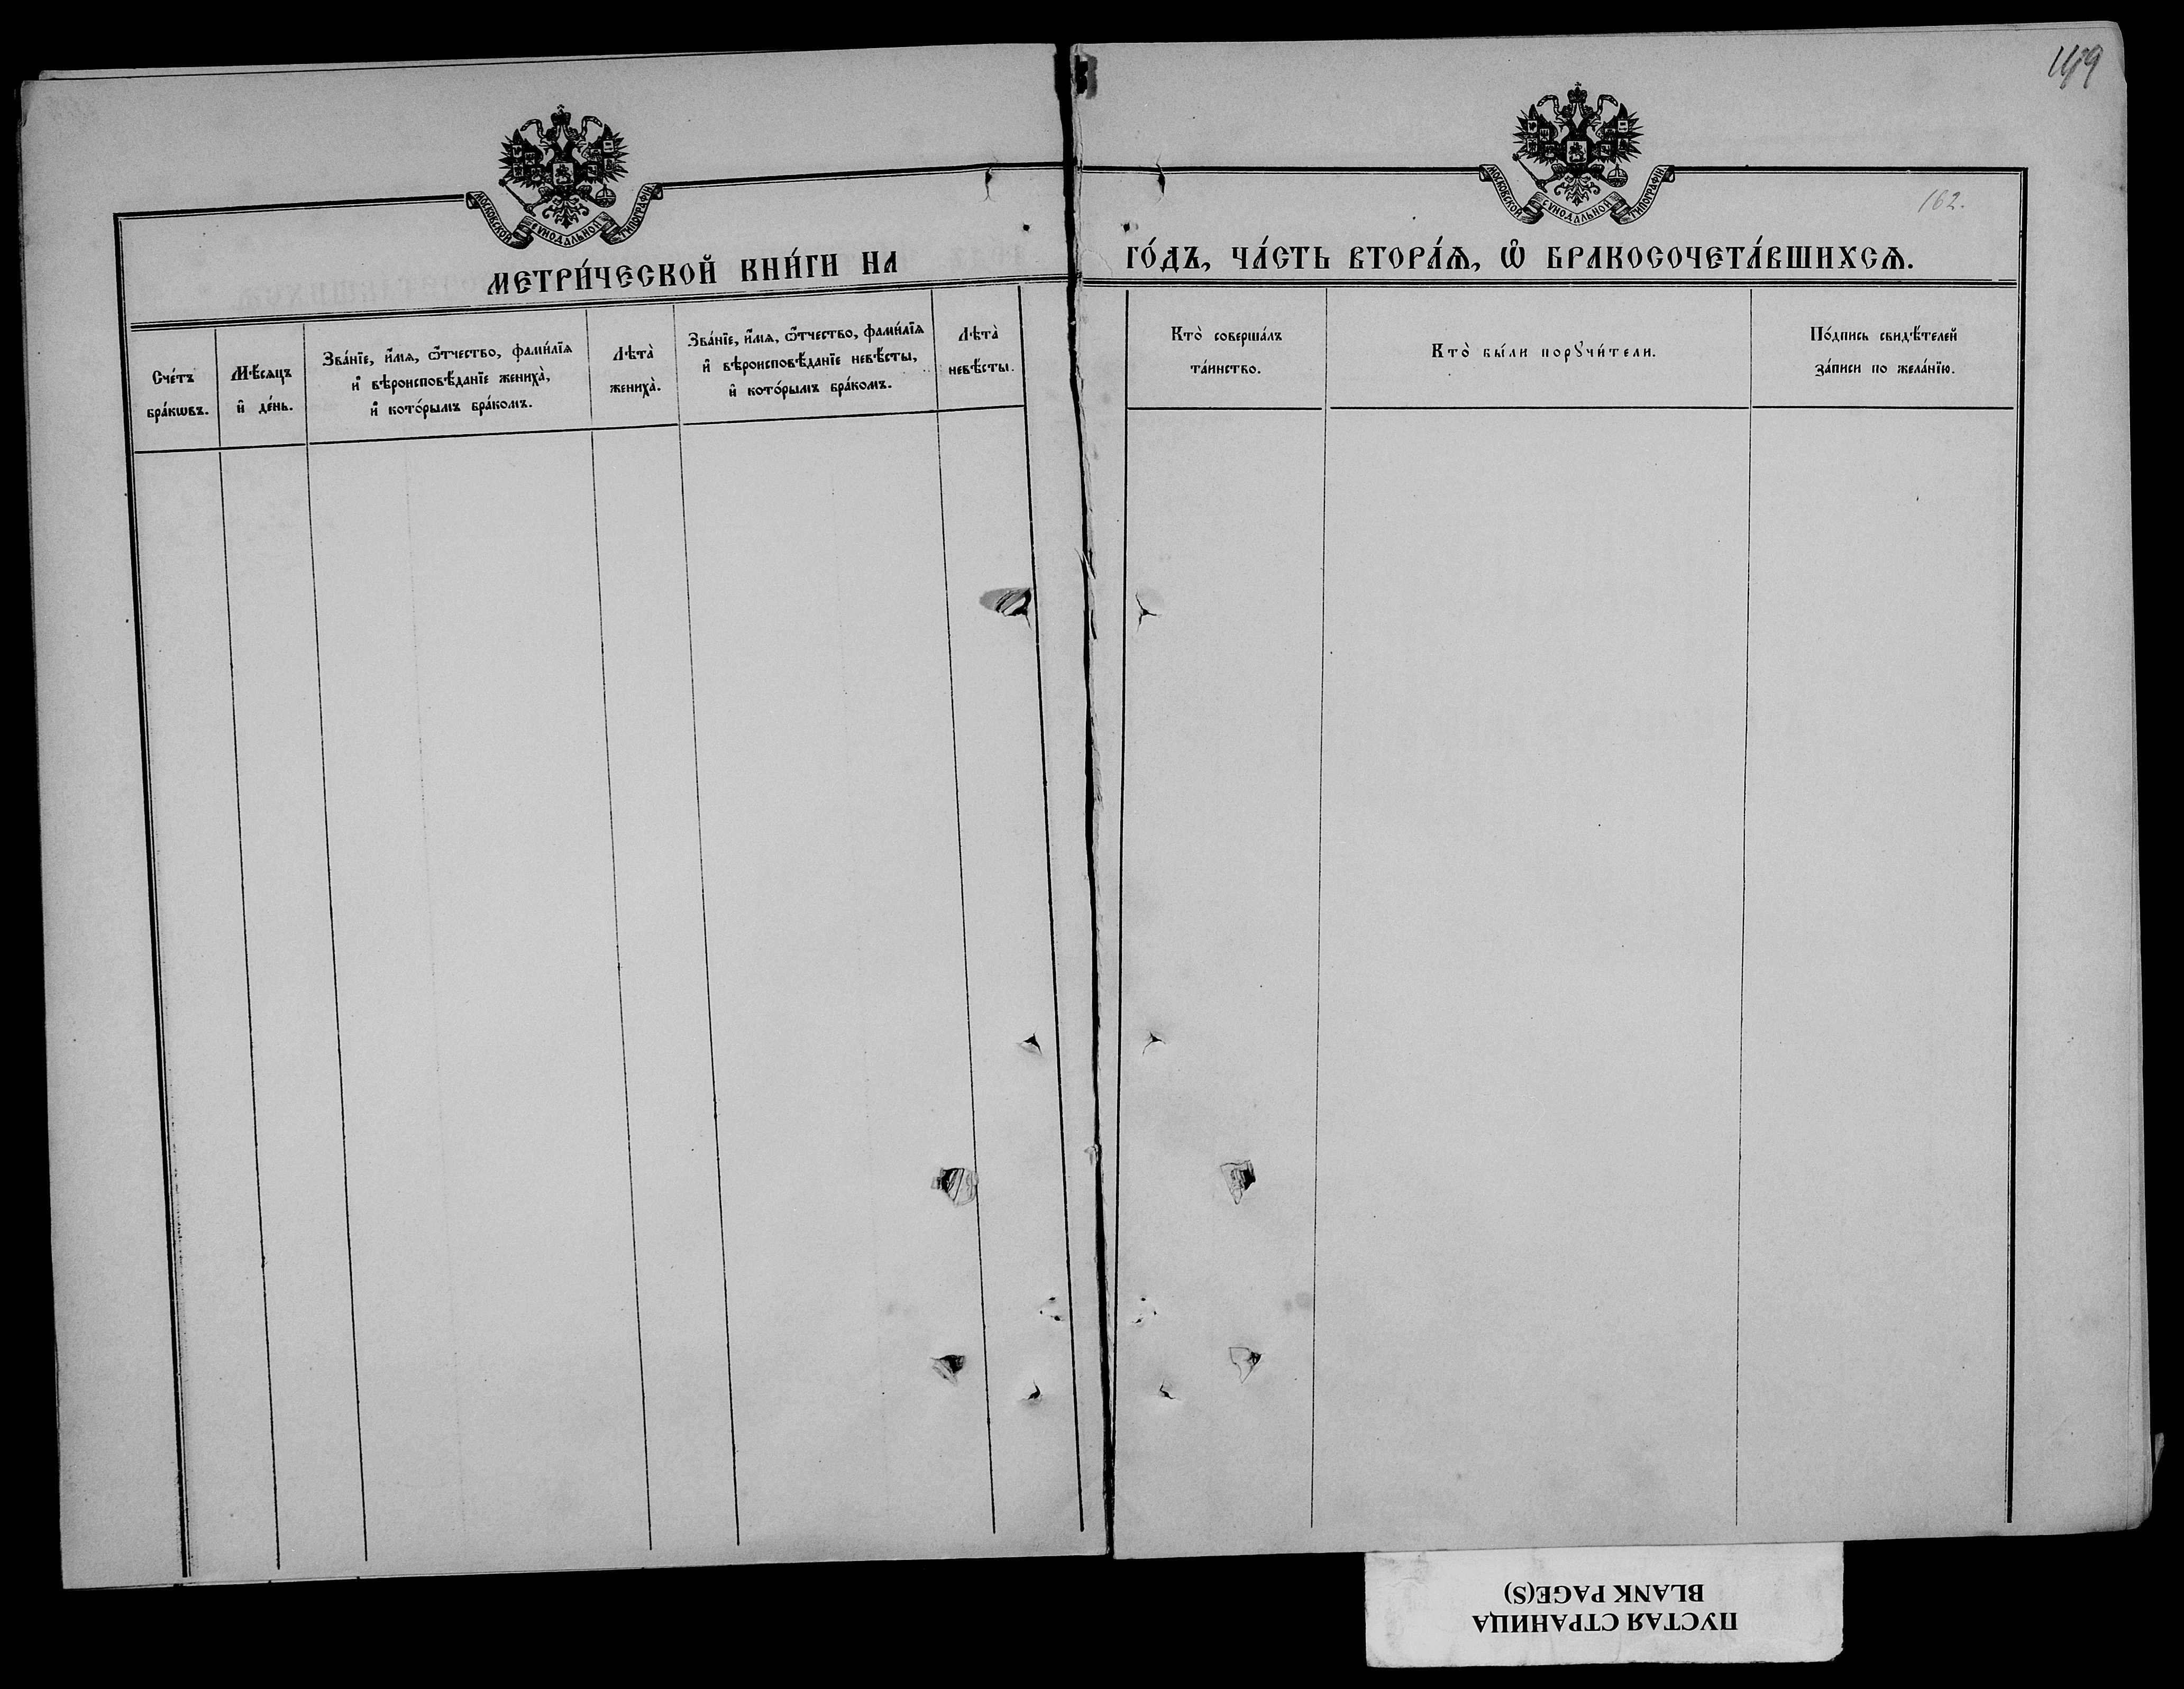 149
162.
МОСКОВСКОЙ СѴНОДАЛЬНОЙ ТИПОГРАФІИ
МОСКОВСКОЙ СѴНОДАЛЬНОЙ ТИПОГРАФІИ
МЕТРИ́ЧЕСКОЙ КНИ́ГИ НА
ГО́ДЪ, ЧА́СТЬ ВТОРА́Ѧ, Ѽ БРАКОСОЧЕТА́ВШИХСѦ.
Сче́тъ
бра́кѡвъ.
Мѣ́сѧцъ
и҆ де́нь.
Зва́нїе, и҆́мѧ, ѻ҆́тчество, фамилїѧ
и҆ вѣроисповѣ́данїе жениха̀,
и҆ кото́рымъ бра́комъ.
Лѣта̀
жениха̀.
Зва́нїе, и҆́мѧ, ѻ҆́тчество, фами́лїѧ
и҆ вѣроисповѣ́данїе невѣ́сты,
и҆ кото́рымъ бра́комъ.
Лѣта̀
невѣ́сты.
Кто̀ соверша́лъ
та́инство.
Кто̀ бы́ли порꙋчи́тели.
По́дпись свидѣ́телей
за́писи по жела́нїю.
ПУСТАЯ СТРАНИЦА
BLANK PAGE(S)